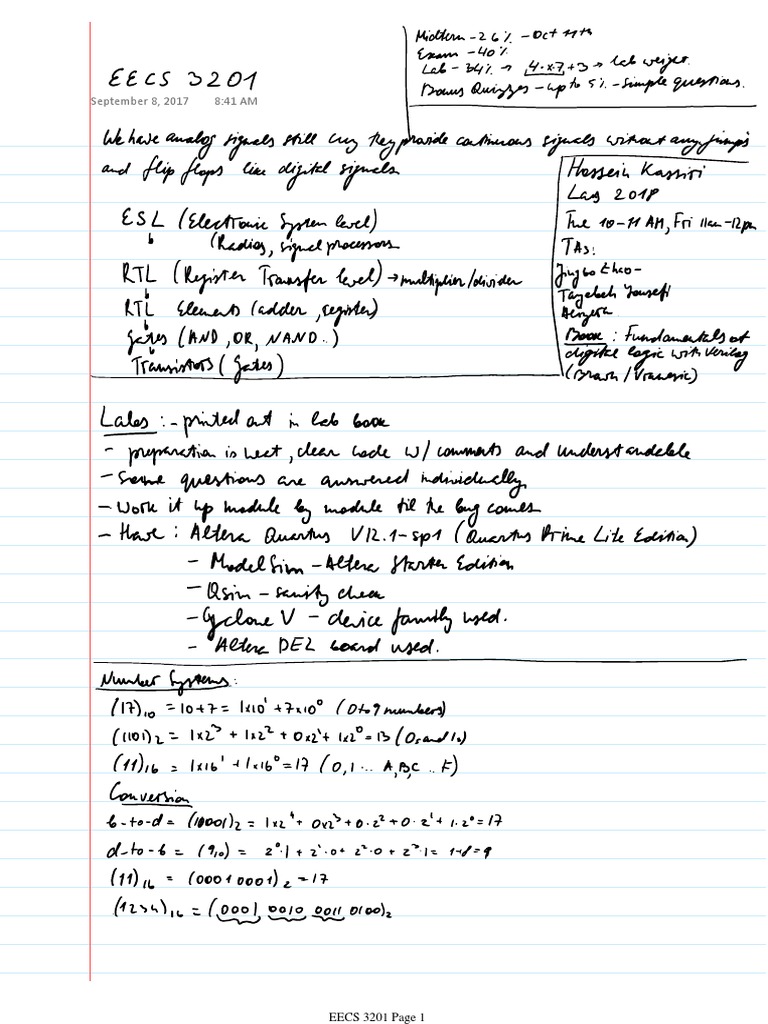 Midterm - 26% - Oct 11th
Exam - 40%
Lab - 34% → 4·x·7 + 3 → lab
Bonus Quizzes - up to 5% - simple questions.
EECS 3201
September 8, 2017 8:41 AM
We have analog signals still they provide continuous signals without any jumps
and flip flops like digital signals
Hossein Kassiri
Las 2018
Tue 10-11 AM, Fri 11am-12pm
TAs:
Book: Fundamentals of
digital logic with Verilog
(Brown/Vranesic)
ESL (Electronic System level)
(Radios, signal processors
RTL (Register Transfer level) → multiplier/divider
RTL Elements (adder, register)
Gates (AND, OR, NAND..)
Transistors (Gates)
Labs: - printed out in lab book
- preparation is neat, clear code w/ comments and understandable
- Some questions are answered individually
- Work it up module by module til the bug comes
- Have: Altera Quartus V12.1-sp1 (Quartus Prime Lite Edition)
- ModelSim - Altera Starter Edition
- Qsim - sanity check
- Cyclone V - device family used.
- Altera DE2 board used.
Number Systems:
(17)₁₀ = 10+7 = 1x10¹ + 7x10⁰ (0 to 9 numbers)
(1101)₂ = 1x2³ + 1x2² + 0x2¹ + 1x2⁰ = 13 (0s and 1s)
(11)₁₆ = 1x16¹ + 1x16⁰ = 17 (0,1 ... A,B,C .. F)
Conversion
b-to-d = (10001)₂ = 1x2⁴ + 0x2³ + 0·2² + 0·2¹ + 1·2⁰ = 17
d-to-b = (9₁₀) = 2⁰·1 + 2¹·0 + 2²·0 + 2³·1 = 1+8 = 9
(11)₁₆ = (0001 0001)₂ = 17
(1234)₁₆ = (0001 0010 0011 0100)₂
EECS 3201 Page 1